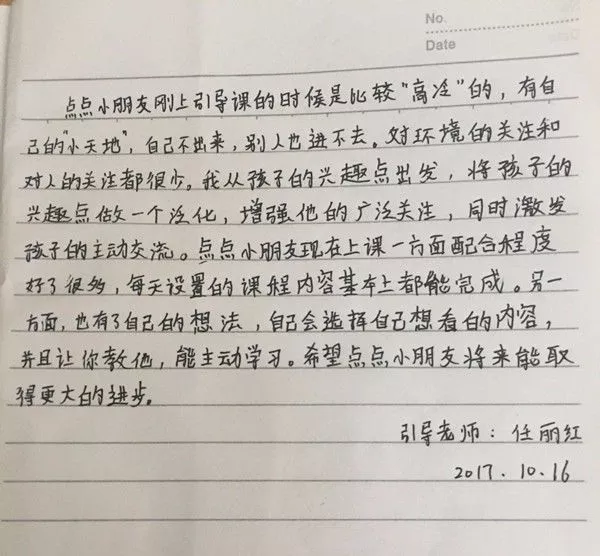 No.
Date
点点小朋友刚上引导课的时候是比较“高冷”的，有自
己的“小天地”，自己不出来，别人也进不去。对环境的关注和
对人的关注都很少。我从孩子的兴趣点出发，将孩子的
兴趣点做一个泛化，增强他的广泛关注，同时激发
孩子的主动交流。点点小朋友现在上课一方面配合程度
好了很多，每天设置的课程内容基本上都能完成。另一
方面，也有了自己的想法，自己会选择自己想看的内容，
并且让你教他，能主动学习。希望点点小朋友将来能取
得更大的进步。
引导老师：任丽红
2017.10.16